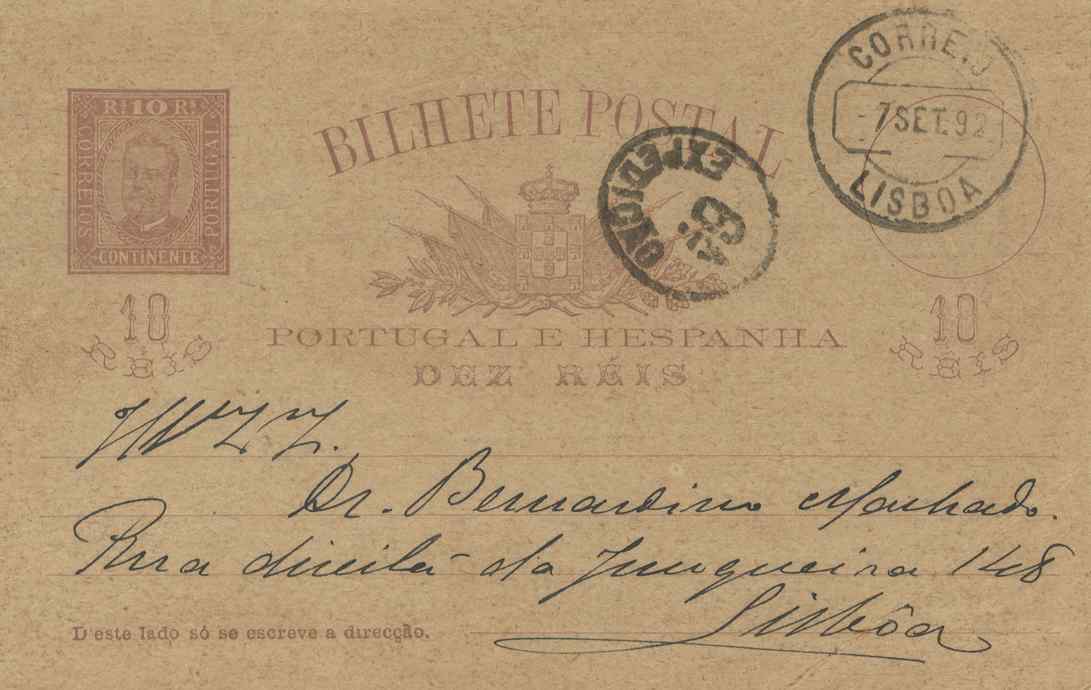 CORREIO
7 SET. 92
LISBOA
Rs. 10 Rs.
CORREIOS
PORTUGAL
CONTINENTE
BILHETE POSTAL
EXPEDIÇÃO
10
REIS
10
REIS
PORTUGAL E HESPANHA
DEZ RÉIS
Dr. Bernardino Machado.
Rua direita da Junqueira 148
Lisbôa
D'este lado só se escreve a direcção.